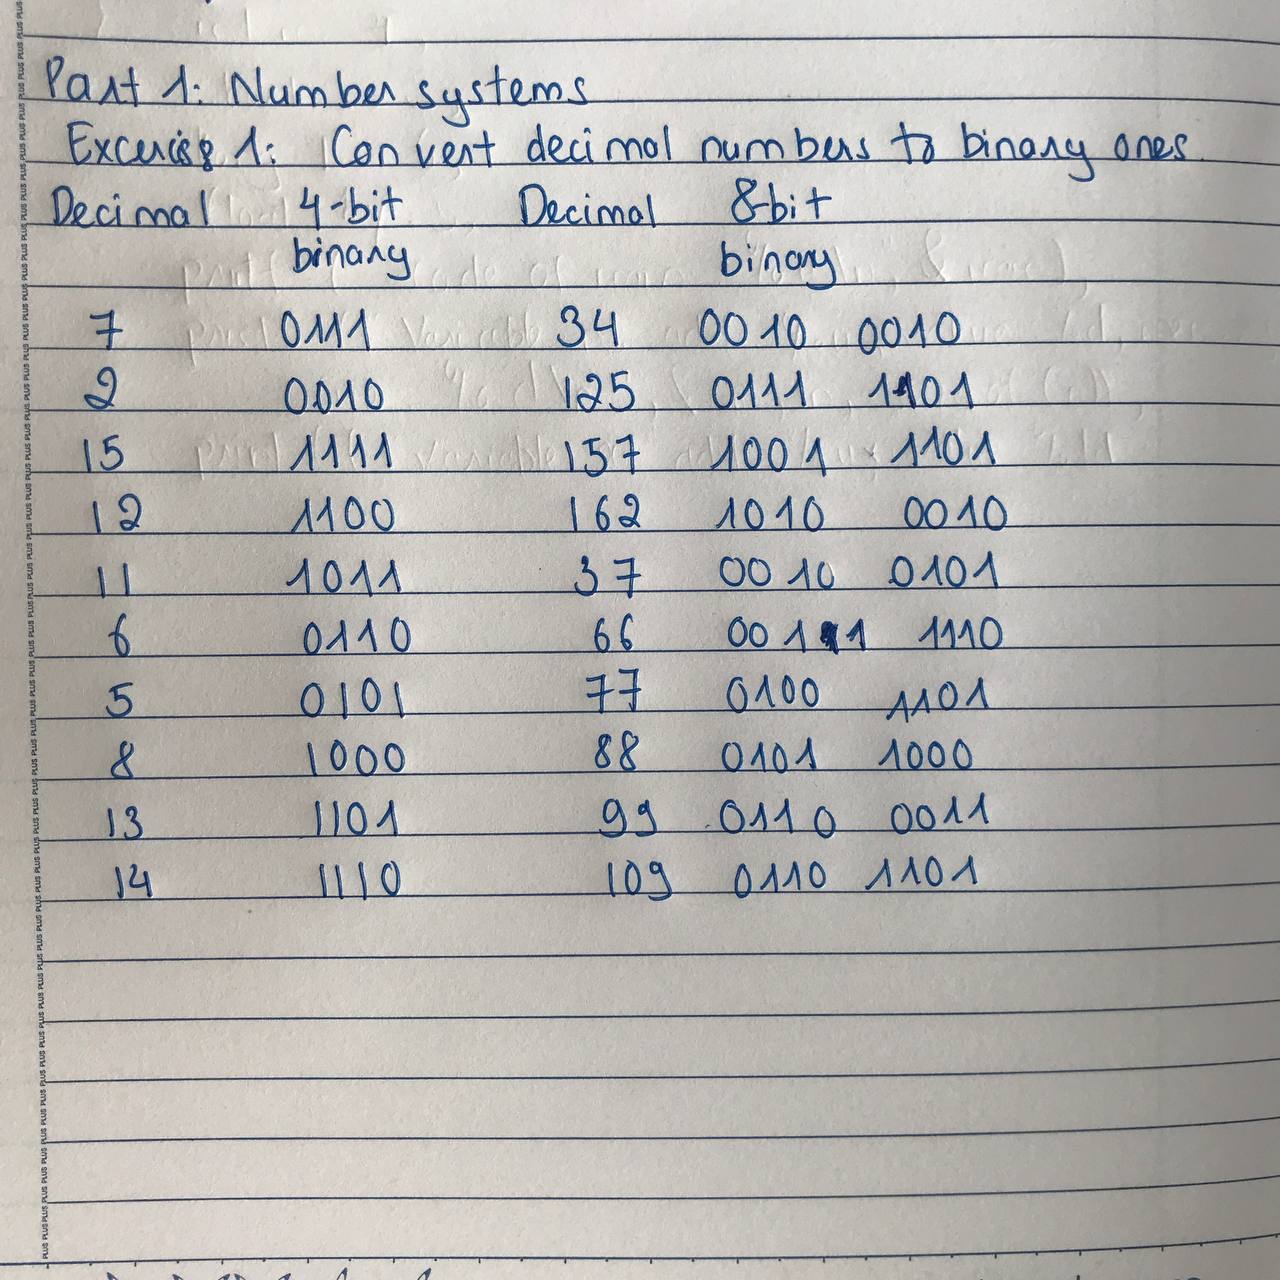 Part 1: Number systems
Excercise 1: Convert decimal numbers to binary ones
Decimal 4-bit Decimal 8-bit
binary binary
7 0111 34 0010 0010
2 0010 125 0111 1101
15 1111 157 1001 1101
12 1100 162 1010 0010
11 1011 37 0010 0101
6 0110 66 0011 1110
5 0101 77 0100 1101
8 1000 88 0101 1000
13 1101 99 0110 0011
14 1110 109 0110 1101